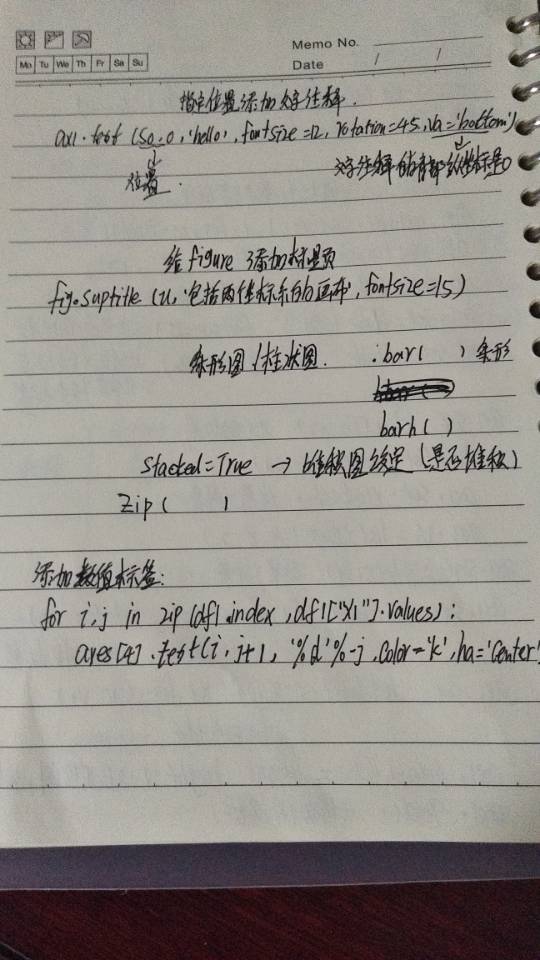 Memo No.
Mo Tu We Th Fr Sa Su
Date / /
指定位置添加文字注释.
ax1.text (50.0, 'hello', fontsize=12, rotation=45, va='bottom')
位置. 文字注释的底部纵坐标是0
给figure添加标题
fig.suptitle (u, '包括两坐标系的画布', fontsize=15)
条形图/柱状图. .bar( ) 条形
barh( )
stacked=True → 堆积图设定 (是否堆积)
zip( )
添加数值标签:
for i,j in zip (df1.index, df1["x1"].values):
axes[4].text(i, j+1, '%d'%j, color='k', ha='center'